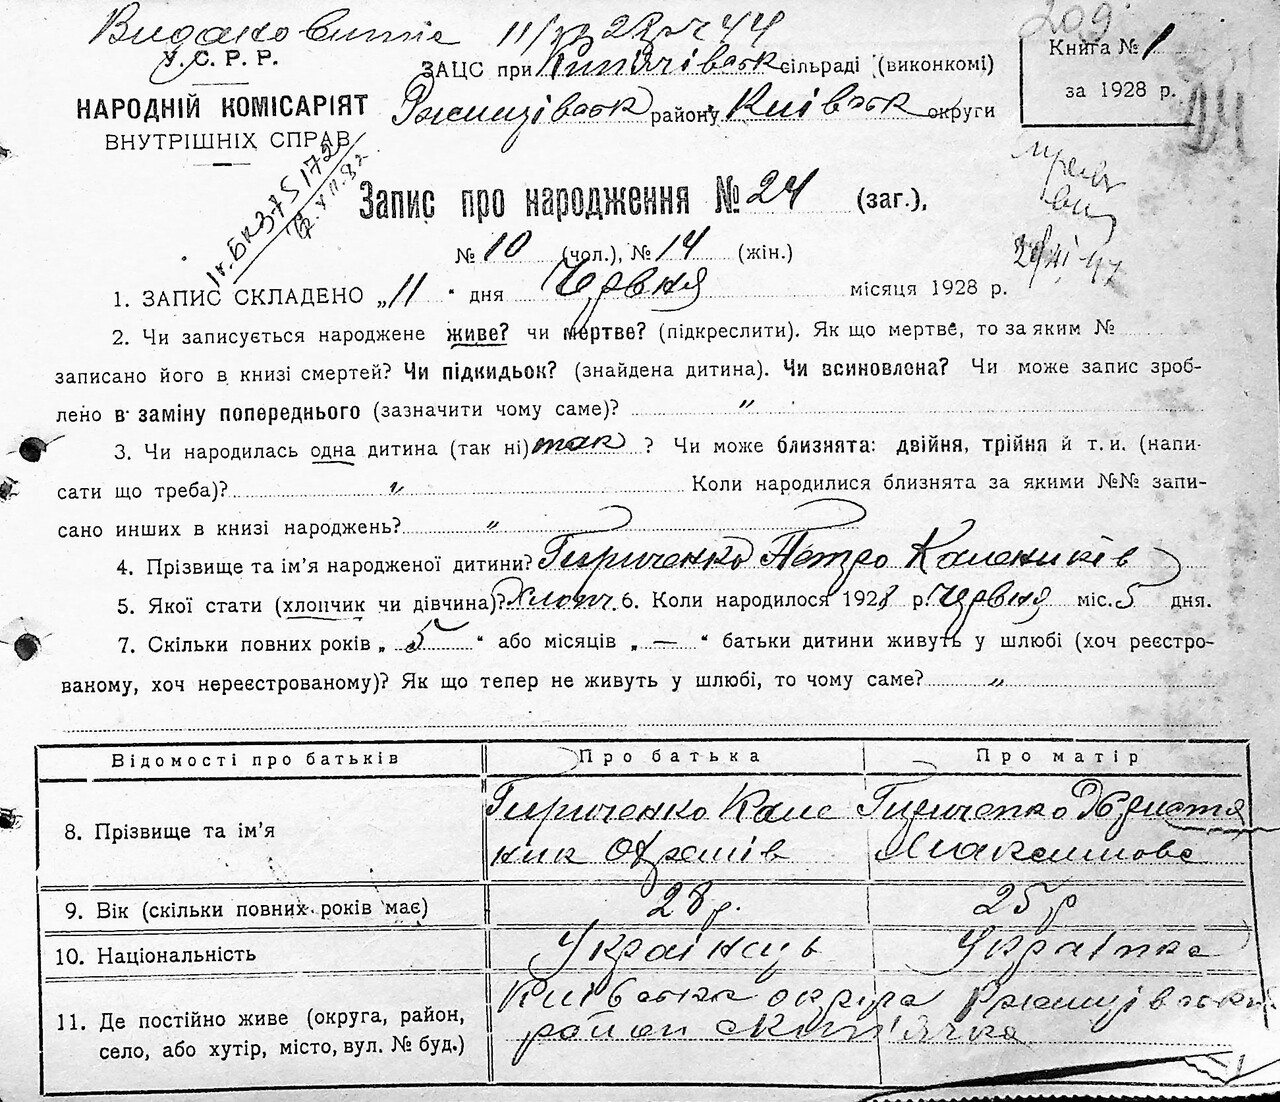 У.С.Р.Р.
НАРОДНІЙ КОМІСАРІЯТ
ВНУТРІШНІХ СПРАВ
ЗАЦС при сільраді (виконкомі)
району Київськ округи
Книга № 1
за 1928 р.
209
Запис про народження № 24 (заг.),
№ 10 (чол.), № 14 (жін.)
1. ЗАПИС СКЛАДЕНО „11 “ дня Червня місяця 1928 р.
2. Чи записується народжене живе? чи мертве? (підкреслити). Як що мертве, то за яким №
записано його в книзі смертей? Чи підкидьок? (знайдена дитина). Чи всиновлона? Чи може запис зроб-
лено в заміну попереднього (зазначити чому саме)? „
3. Чи народилась одна дитина (так ні) так ? Чи може близнята: двійня, трійня й т. и. (напи-
сати що треба)? „ Коли народилися близнята за якими №№ запи-
сано инших в книзі народжень? „
4. Прізвище та ім’я народженої дитини? Гириченко Петро Калеників
5. Якої стати (хлопчик чи дівчина)? Хлопч. 6. Коли народилося 1928 р. Червня міс. 5 дня.
7. Скільки повних років „ 5 “ або місяців „ — “ батьки дитини живуть у шлюбі (хоч реєстро-
ваному, хоч нереєстрованому)? Як що тепер не живуть у шлюбі, то чому саме? „
Відомості про батьків Про батька Про матір
8. Прізвище та ім’я Гириченко Кале Гириченко
ник Охремів Максимова
9. Вік (скільки повних років має) 28 р. 25 р
10. Національність Українець Українка
11. Де постійно живе (округа, район, село, або хутір, місто, вул. № буд.) Київська округа
район